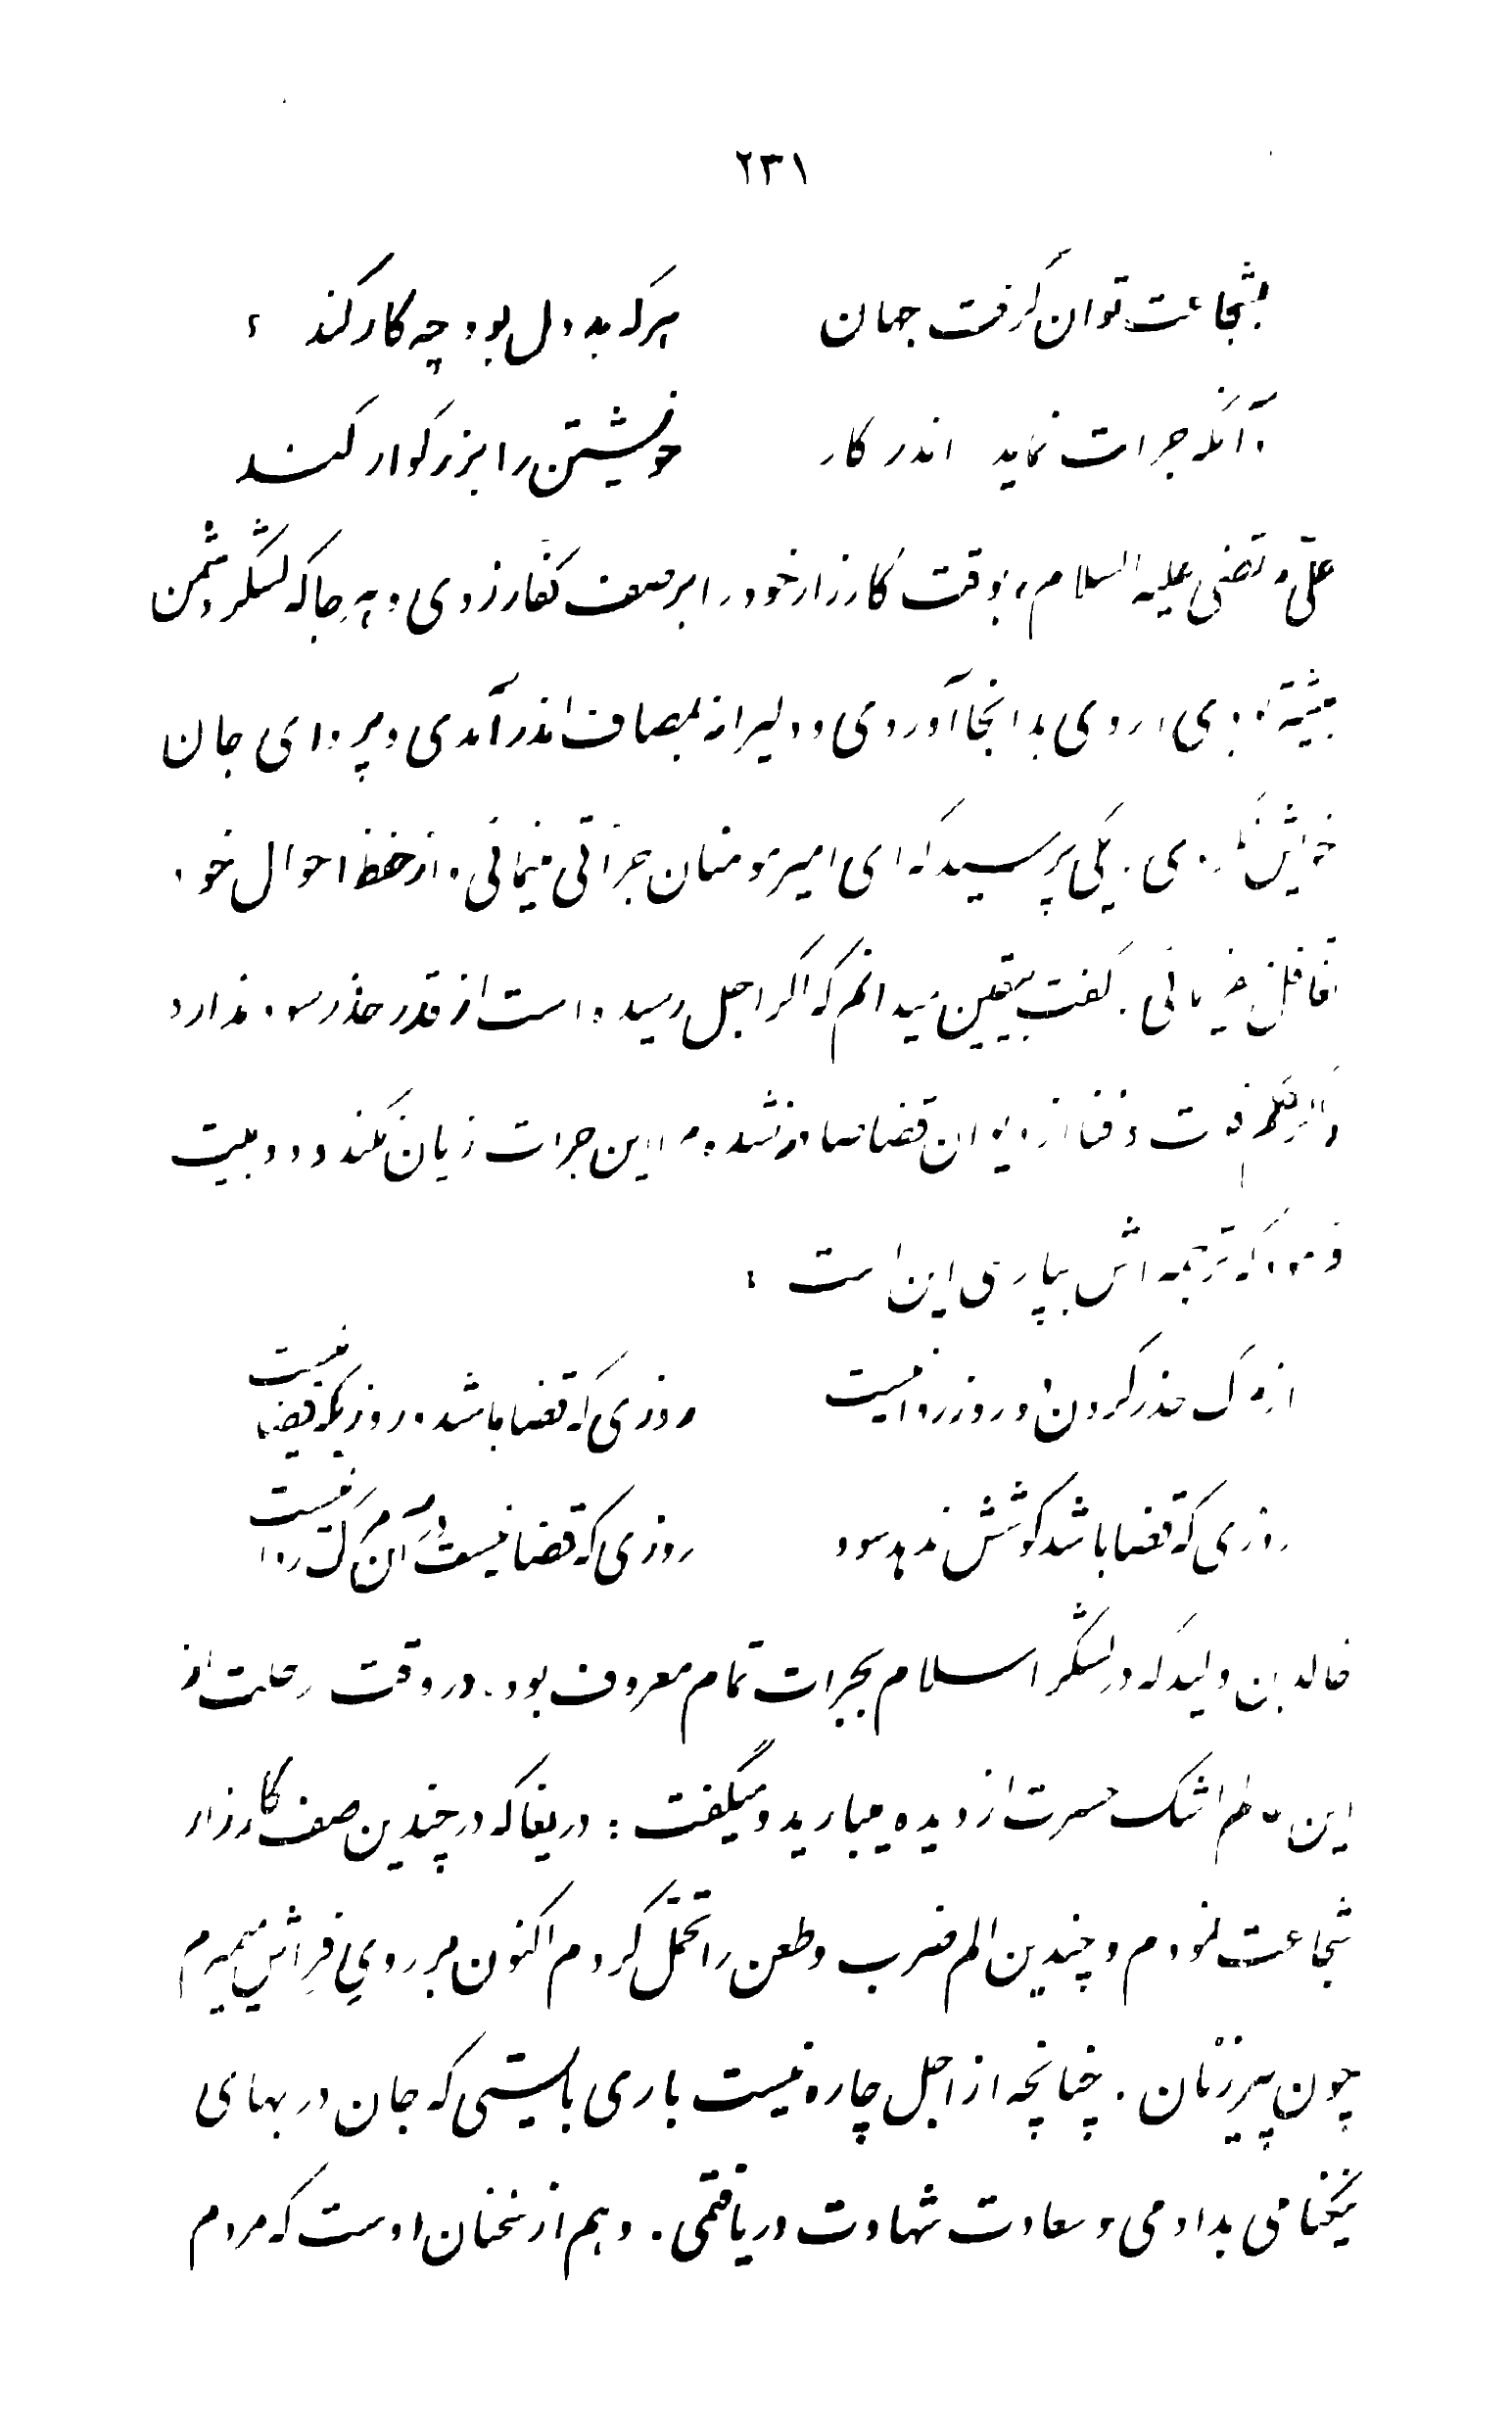 ۲۳۱
بشجاعت توان گرفت جهان هرکه بددل بود چه کار کند ؛
آنکه جرات نماید اندر کار خویشتن را بزرگوار کند
علی مرتضی علیه السلام، بوقت کارزار خود را بر صف کفار زدی و بهر جا که لشگر دشمن
بیشتر بودی، روی بدانجا آوردی و دلیرانه بمصاف اندر آمدی و پروای جان
خویش نکردی. یکی پرسید که ای امیر مومنان جراتی مینمائی و از حفظ احوال خود
تغافل میفرمائی. گفت بیقین میدانم که اگر اجل رسیده است از قدر حذر سود ندارد
و اگر حکم فوت و فنا از دیوان قضا صادر نشده مرا این جرات زیان نکند و دو بیت
فرمود که ترجمه اش بپارسی این است :
از مرگ حذر کردن دو روز روا نیست روزی که قضا باشد و روزیکه قضا نیست
روزی که قضا باشد کوشش ندهد سود روزی که قضا نیست در آن مرگ روا نیست
خالد بن ولید که در لشگر اسلام بجرات تمام معروف بود. در وقت رحلت از
این عالم اشک حسرت از دیده میبارید و میگفت : دریغا که در چندین صف کارزار
شجاعت نمودم و چندین الم ضرب و طعن را تحمّل کردم اکنون بر رویِ فِراش میمیرم
چون پیرزنان. چنانچه از اجل چاره نیست باری بایستی که جان در بهای
نیکنامی بدادمی و سعادت شهادت دریافتمی. و هم از سخنان اوست که مردم